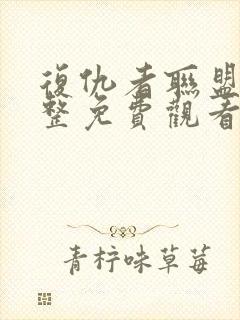 復仇者聯盟
整免費觀看
青柠味草莓